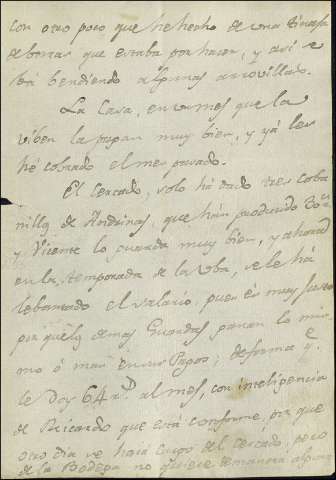 con otro poco que he hecho de una tinaja
de borras que estaba por hacer, y asi se
bá bendiendo algunas arrovillas.
La Casa, en vmes que la
viben la pagan muy bien, y yá les
hé cobrado el mes pasado.
El Cercado, solo há dado tres coba
nillos de Andrinas, que hán producido 30 rs
y Vicente lo guarda muy bien, y ahora
en la temporada de la Uba, se le há
lebantado el salario, pues és muy justo
por que los demas Guardas ganan lo mis
mo ó mas en sus Pagos; de forma qe
le doy 64 rs al mes, con inteligencia
de Ricardo que está conforme, por que
otro dia se hará cargo del cercado, pero
de la Bodega no quiere de manera alguna